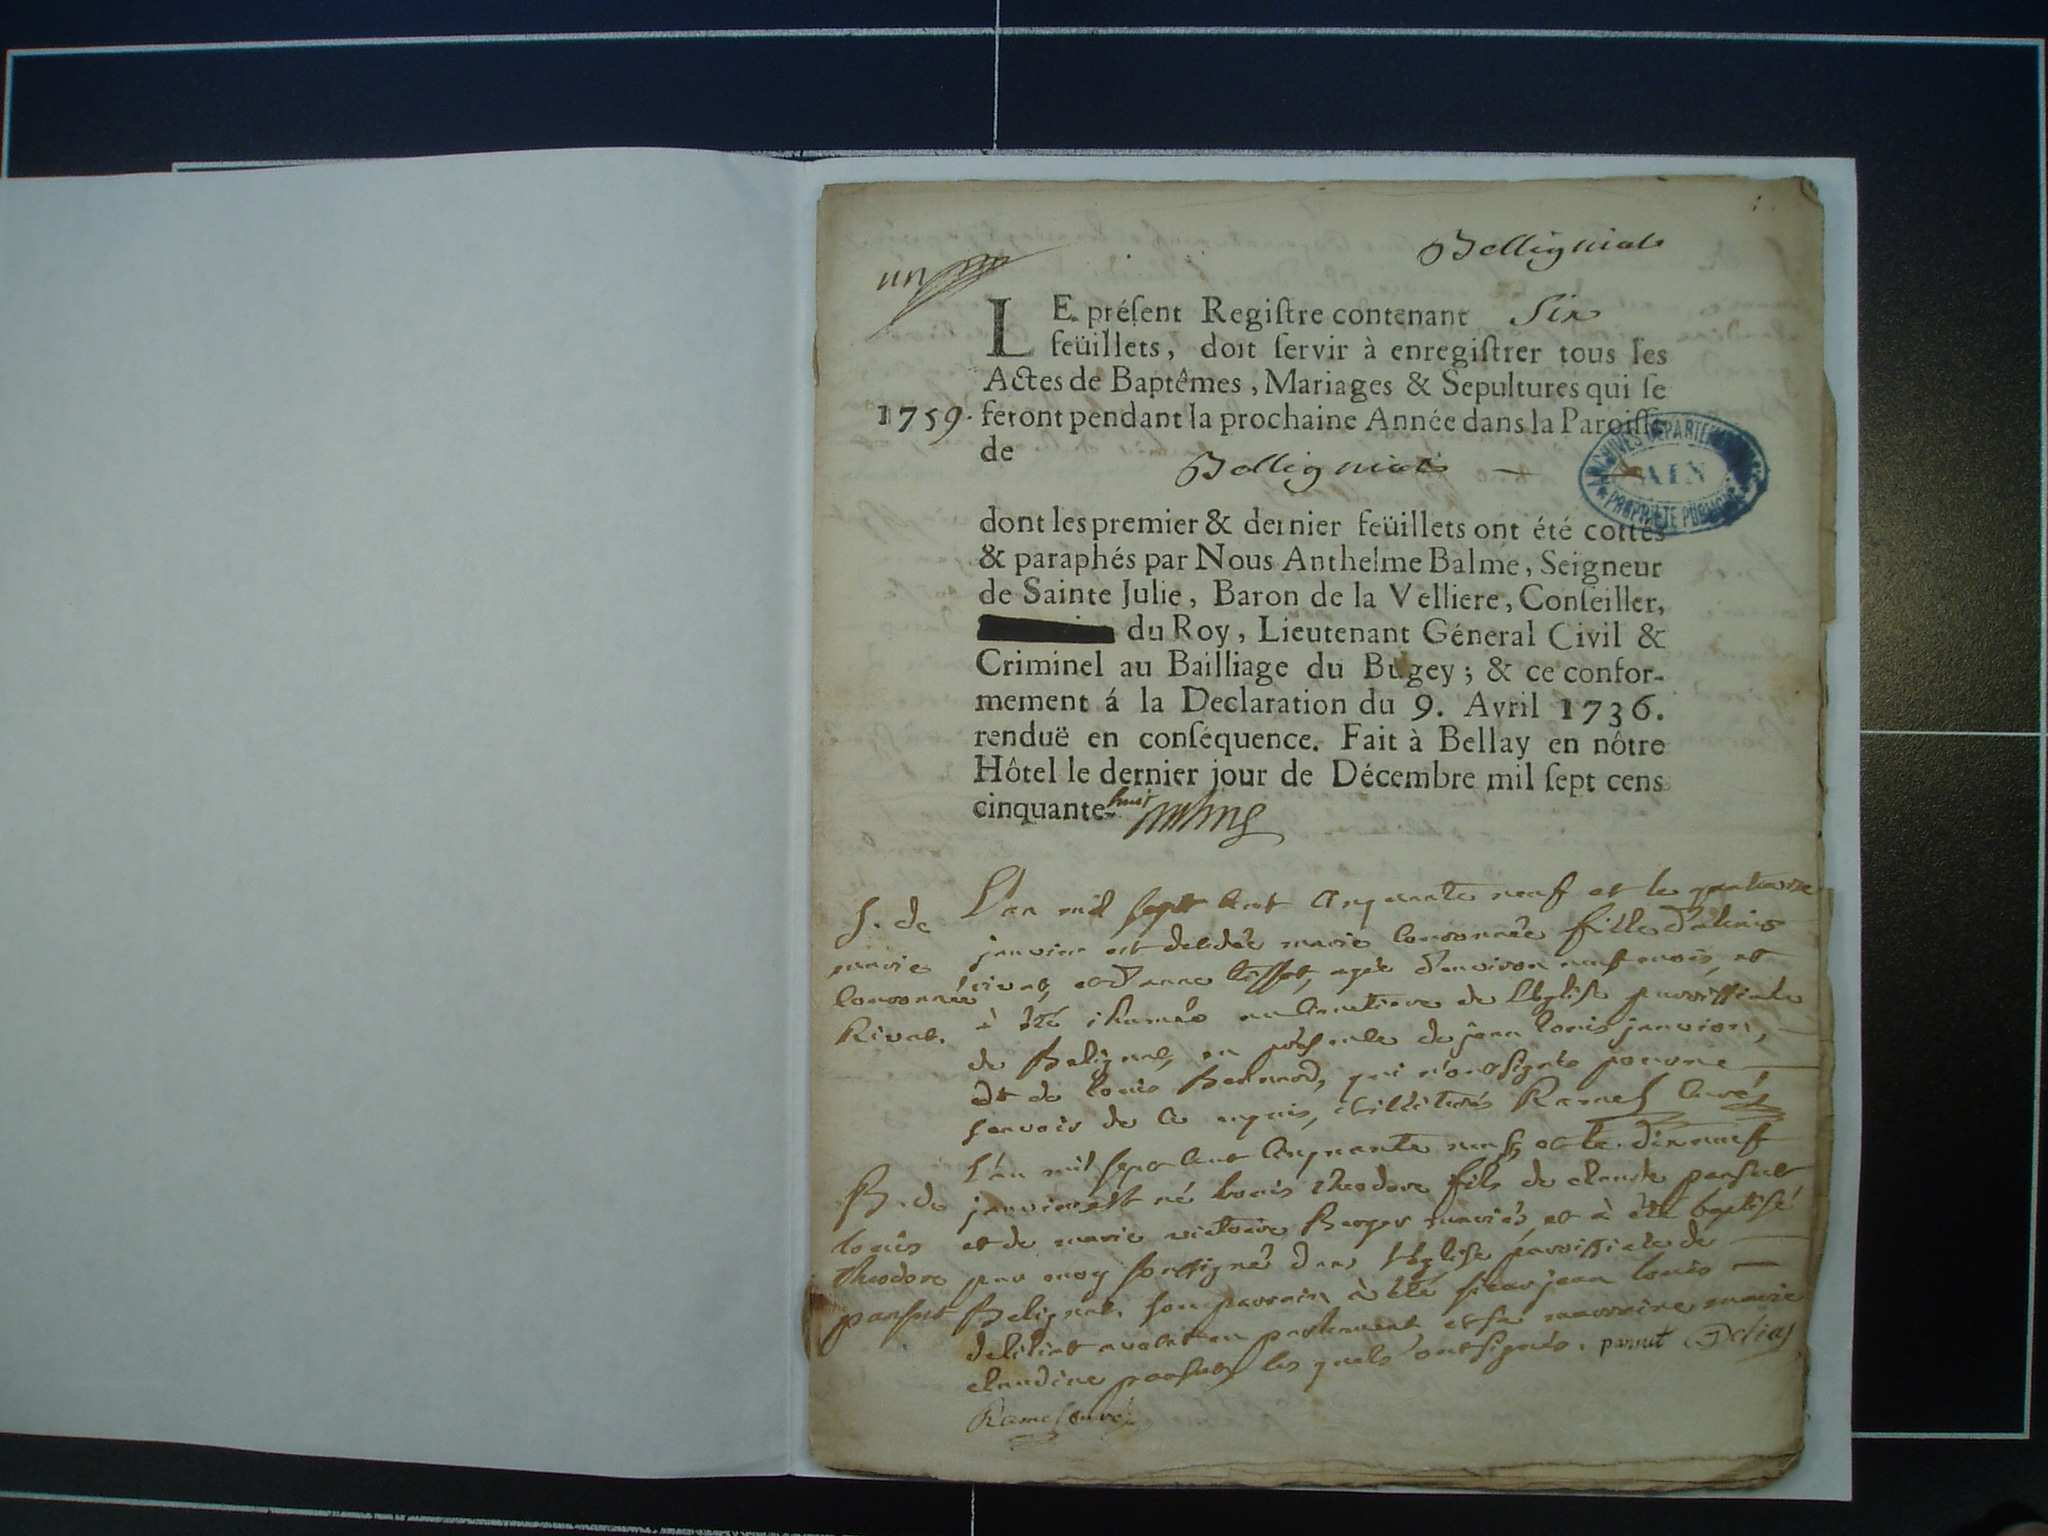 Bellignials
un
LE présent Registre contenant Six
feüillets, doit servir à enregistrer tous les
Actes de Baptêmes, Mariages & Sepultures qui se
1759. feront pendant la prochaine Année dans la Paroisse
de Bellignials
ARCHIVES DEPARTEMENTALES
AIN
PROPRIÉTÉ PUBLIQUE
dont les premier & dernier feüillets ont été cottés
& paraphés par Nous Anthelme Balme, Seigneur
de Sainte Julie, Baron de la Velliere, Conseiller,
du Roy, Lieutenant Géneral Civil &
Criminel au Bailliage du Bugey ; & ce confor-
mement á la Declaration du 9. Avril 1736.
renduë en conséquence. Fait à Bellay en nôtre
Hôtel le dernier jour de Décembre mil sept cens
cinquante-huit
S. de
marie
Rivat.
L'an mil sept cent cinquante neuf et le quatorze
janvier est decedée marie fille
rivat, et d'anne agée d'environ neuf mois, et
à été inhumée au cimetiere de l'église parroissiale
de Belignat, en présence de jean louis janvion,
et de louis Bernard, qui n'ont signés pour ne
sçavoir de ce enquis, Ramel curé
B. de
louis
theodore
pansut
L'an mil sept cent cinquante neuf, et le dix neuf
janvier est né louis theodore fils de claude pansut
et de marie victoire Berger mariés, et à été baptisé
par moy soussigné dans l'église paroissiale de
Belignat. son parrain à été sieur jean louis
avocat en parlement et sa marraine marie
claudine pansut, les quels ont signés. pansut
Ramel curé